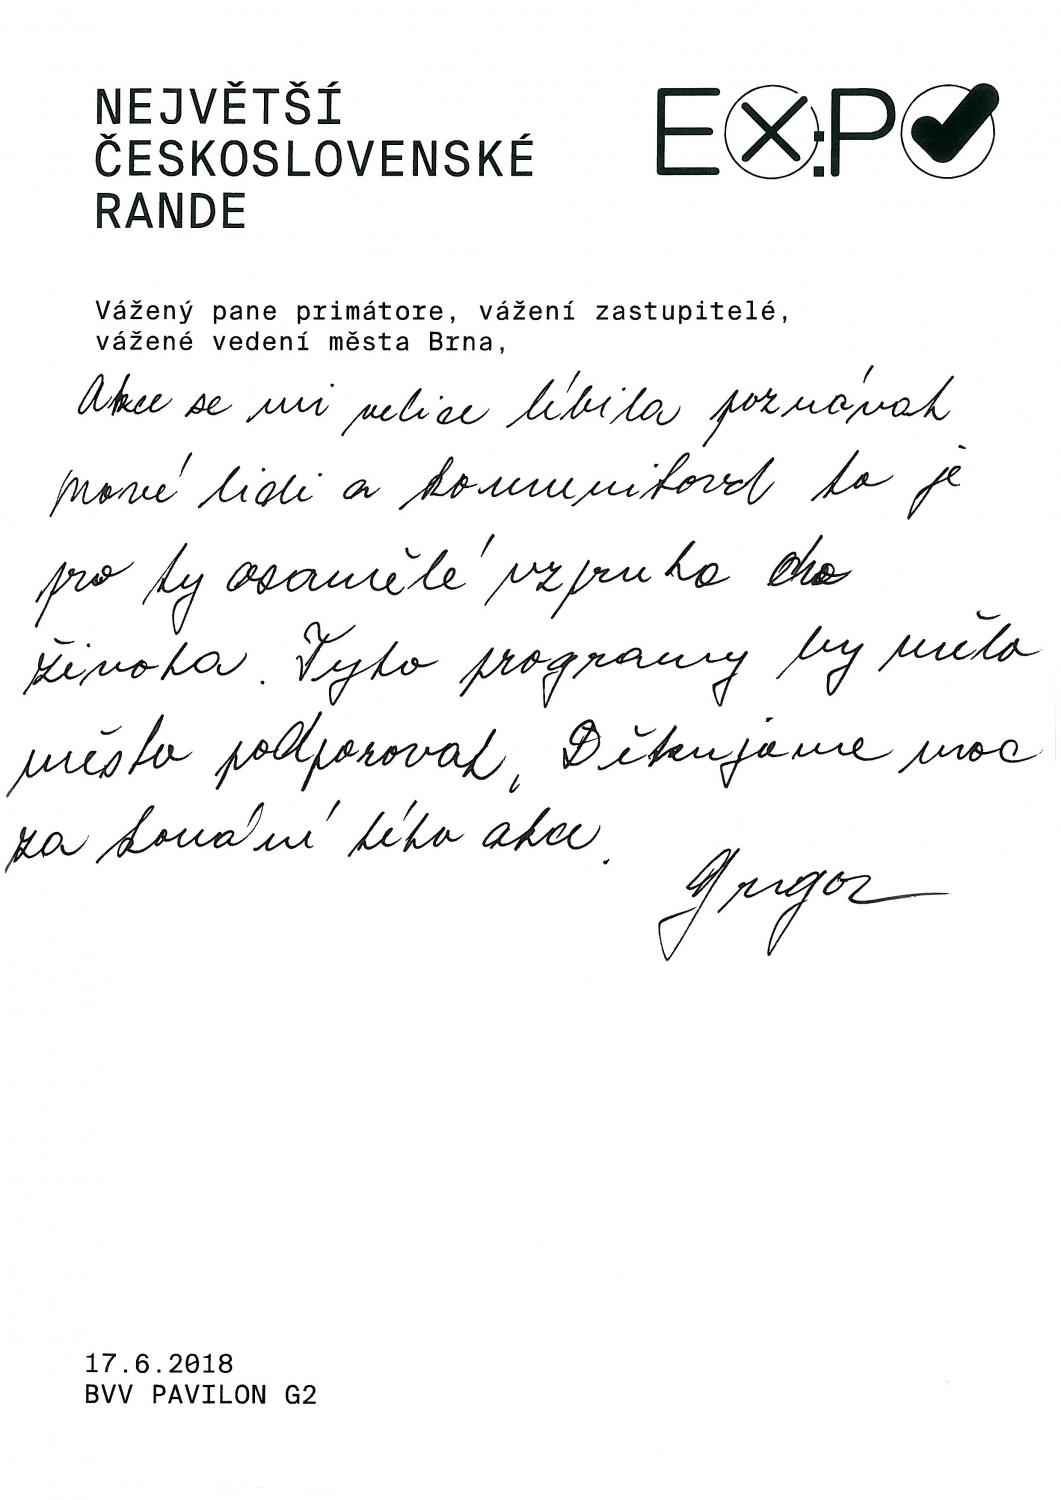 NEJVĚTŠÍ
ČESKOSLOVENSKÉ
RANDE
EX:PO
Vážený pane primátore, vážení zastupitelé,
vážené vedení města Brna,
Akce se mi velice líbila poznávat
nové lidi a komunitovat to je
pro ty osamělé vzpruha do
života. Tyto programy by mělo
město podporovat, Děkujeme moc
za konání této akce.
17.6.2018
BVV PAVILON G2